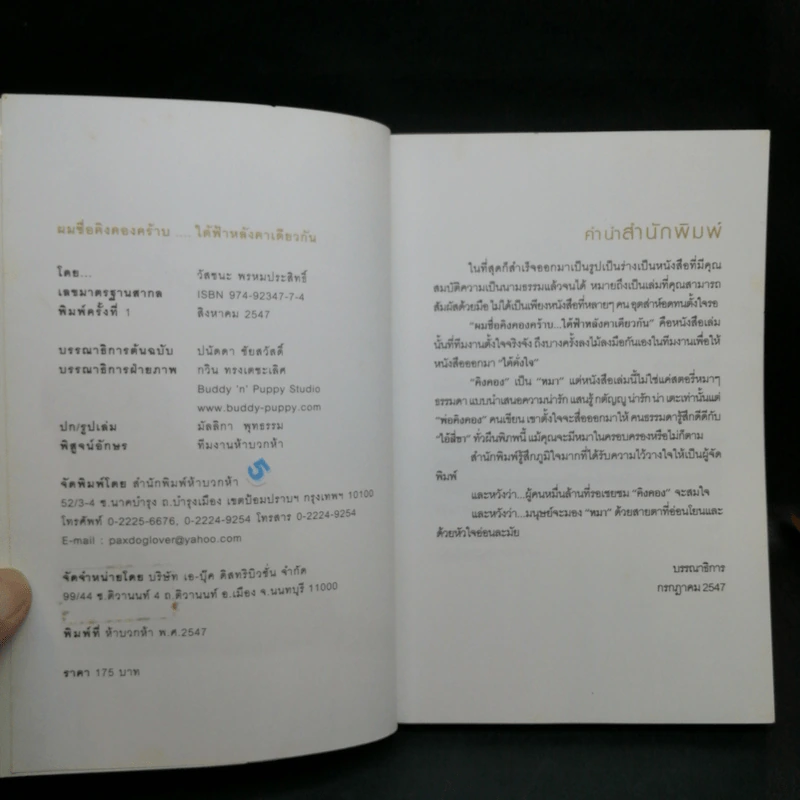 ผมชื่อคิงคองคร้าบ .... ใต้ฟ้าหลังคาเดียวกัน
โดย... วัสชนะ พรหมประสิทธิ์
เลขมาตรฐานสากล ISBN 974-92347-7-4
พิมพ์ครั้งที่ 1 สิงหาคม 2547
บรรณาธิการต้นฉบับ ปนัดดา ชัยสวัสดิ์
บรรณาธิการฝ่ายภาพ กวิน ทรงเดชะเลิศ
Buddy 'n' Puppy Studio
www.buddy-puppy.com
ปก/รูปเล่ม มัลลิกา พุทธรรม
พิสูจน์อักษร ทีมงานห้าบวกห้า
5
จัดพิมพ์โดย สำนักพิมพ์ห้าบวกห้า
52/3-4 ซ.นาคบำรุง ถ.บำรุงเมือง เขตป้อมปราบฯ กรุงเทพฯ 10100
โทรศัพท์ 0-2225-6676, 0-2224-9254 โทรสาร 0-2224-9254
E-mail : paxdoglover@yahoo.com
จัดจำหน่ายโดย บริษัท เอ-บุ๊ค ดิสทริบิวชั่น จำกัด
99/44 ซ.ติวานนท์ 4 ถ.ติวานนท์ อ.เมือง จ.นนทบุรี 11000
พิมพ์ที่ ห้าบวกห้า พ.ศ.2547
ราคา 175 บาท
คำนำสำนักพิมพ์
ในที่สุดก็สำเร็จออกมาเป็นรูปเป็นร่างเป็นหนังสือที่มีคุณ
สมบัติความเป็นนามธรรมแล้วจนได้ หมายถึงเป็นเล่มที่คุณสามารถ
สัมผัสด้วยมือ ไม่ได้เป็นเพียงหนังสือที่หลายๆ คน อุตสาห์อดทนตั้งใจรอ
"ผมชื่อคิงคองคร้าบ...ใต้ฟ้าหลังคาเดียวกัน" คือหนังสือเล่ม
นั้นที่ทีมงานตั้งใจจริงจัง ถึงบางครั้งลงไม้ลงมือกันเองในทีมงานเพื่อให้
หนังสือออกมา "ได้ดั่งใจ"
"คิงคอง" เป็น "หมา" แต่หนังสือเล่มนี้ไม่ใช่แค่สตอรี่หมาๆ
ธรรมดา แบบนำเสนอความน่ารัก แสนรู้ กตัญญู น่ารัก น่า เตะเท่านั้นแต่
"พ่อคิงคอง" คนเขียน เขาตั้งใจจะสื่อออกมาให้ คนธรรมดารู้สึกดีดีกับ
"ไอ้สี่ขา" ทั่วผืนพิภพนี้ แม้คุณจะมีหมาในครอบครองหรือไม่ก็ตาม
สำนักพิมพ์รู้สึกภูมิใจมากที่ได้รับความไว้วางใจให้เป็นผู้จัด
พิมพ์
และหวังว่า...ผู้คนหมื่นล้านที่รอเชยชม "คิงคอง" จะสมใจ
และหวังว่า....มนุษย์จะมอง "หมา" ด้วยสายตาที่อ่อนโยนและ
ด้วยหัวใจอ่อนละมัย
บรรณาธิการ
กรกฎาคม 2547